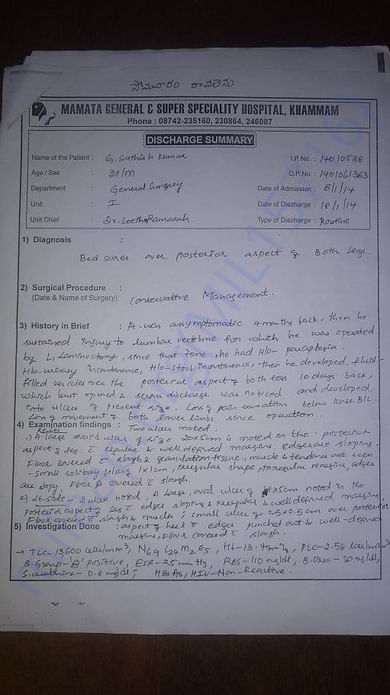 సోమవారం రావలెను
MAMATA GENERAL & SUPER SPECIALITY HOSPITAL, KHAMMAM
Phone : 08742-235160, 230864, 246087
DISCHARGE SUMMARY
Name of the Patient : G. Sathish Kumar I.P.No. : 14010588
Age / Sex : 30/m O.P.No. : 1401061363
Department : General Surgery Date of Admission : 6/1/14
Unit : I Date of Discharge : 18/1/14
Unit Chief : Dr. Seetha Ramaiah Type of Discharge : Routine
1) Diagnosis :
Bed sores over posterior aspect of Both legs.
2) Surgical Procedure :
(Date & Name of Surgery) Conservative Management.
3) History in Brief : A. was asymptomatic 4 months back, then he
sustained injury to lumbar vertebrae for which he was operated
by L1 Laminectomy, since that time he had H/o- paraplegia.
H/o- urinary incontinence, H/o- stool incontinence, then he developed fluid-
filled vesicles over the posterior aspect of both legs 10 days back,
which burst opened & serous discharge was noticed and developed
into ulcers of present size. Loss of pain sensation below knee B/L.
Loss of movement of both lower limbs since operation.
4) Examination findings : Two ulcers noted.
A large oval ulcer of size 20x5cm is noted in the posterior
aspect of leg c regular & well defined margins, edges are sloping.
Floor covered c slough & granulation tissue, muscle & tendons are seen
- small solitary ulcer 1x1cm, irregular shape, irregular margins, edges
are slopy. Floor is covered c slough.
2 ulcers noted, A large, oval ulcer x5cm noted in the
posterior aspect of leg c edges sloping & regular & well defined margins,
Floor covered c slough & muscle; small ulcer of 0.5x0.5cm over posterior
5) Investigation Done : aspect of heel c edges punched out & well-defined
margins, Floor covered c slough.
→ TLC- 13600 cells/mm³, N69 L24 M2 E5, Hb- 13.4gm%, PLC- 2.58
B. Group- 'B' positive, ESR- 25 mm Hg, RBS- 110 mg/dl, B. Urea- 20 mg/dl,
S. creatinine- 0.8 mg/dl; HBsAg, HIV- Non-Reactive.